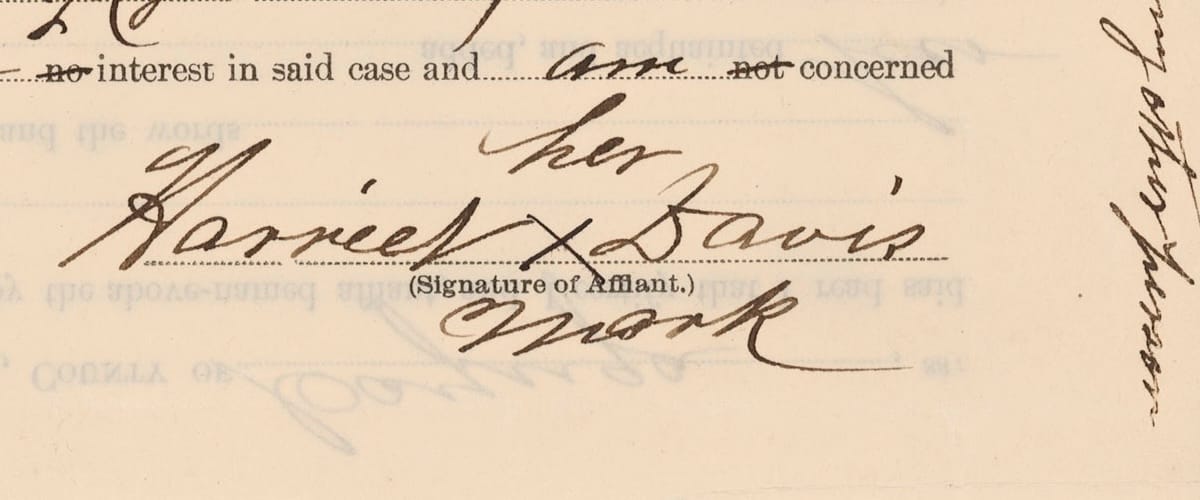 no interest in said case and am not concerned
her
Harriet X Davis
(Signature of Affiant.)
mark
any other person